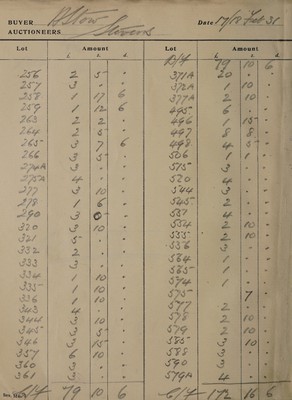 BUYER Stow Date 17/18 Feb 31
AUCTIONEERS Stevens
Lot Amount Lot Amount
£ s. d. £ s. d.
B/f 79 10 6
256 2 5 "
257 3 " "
258 1 17 6
259 1 12 6
263 2 2 "
264 2 5 "
265 3 7 6
266 3 5 "
274A 3 " "
275A 4 " "
277 3 10 "
278 1 6 "
290 3 0 "
320 3 10 "
321 5 " "
332 2 " "
333 3 " "
334 1 10 "
335 1 10 "
336 1 10 "
343 4 " "
344 3 10 "
345 3 5 "
346 3 15 "
357 6 10 "
360 3 " "
361 3 " "
C/f 79 10 6
371A 20 " "
372A 1 10 "
377A 2 10 "
495 6 " "
496 1 15 "
497 8 8 "
498 4 5 "
506 1 1 "
515 3 " "
520 4 " "
544 3 " "
545 2 " "
557 4 " "
554 2 10 "
555 2 10 "
556 3 " "
564 1 " "
565 1 " "
574 1 " "
575 7 "
577 2 " "
578 2 10 "
579 2 10 "
585 3 10 "
588 3 " "
590 3 " "
579A 4 " "
C/f 172 16 6